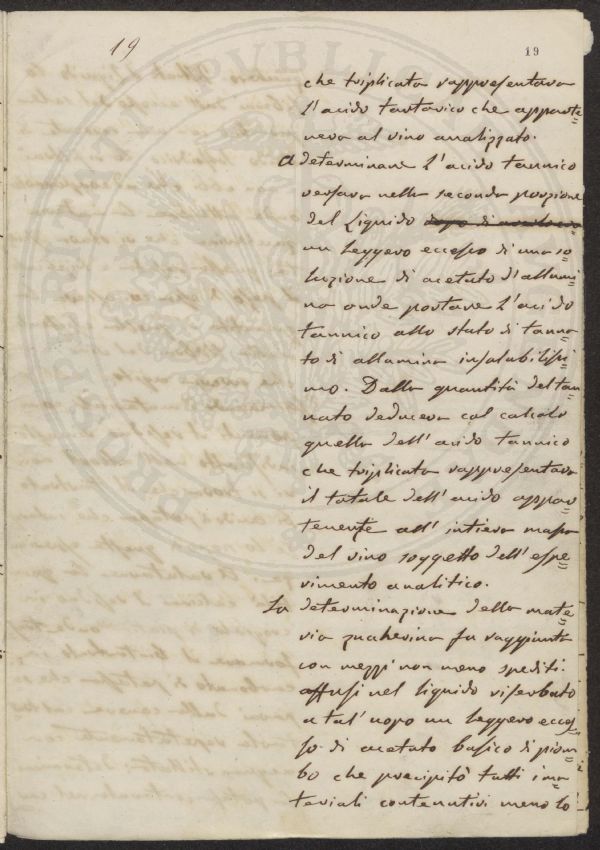 19
19
che triplicata rappresentava
l'acido tartarico che apparte=
neva al vino analizzato.
A determinare l'acido tannico
versava nella seconda porzione
del liquido dopo di
un leggero eccesso di una so=
luzione di acetato d'allumi=
na onde portare l'acido
tannico allo stato di tanna=
to di allumina insolubilissi=
mo. Dalla quantità del tan=
nato deduceva col calcolo
quella dell'acido tannico
che triplicata rappresentava
il totale dell'acido appar=
tenente all'intiera massa
del vino soggetto dell'espe=
rimento analitico.
La determinazione della mate=
ria zucherina fu raggiunta
con mezzi non meno spediti.
affusi nel liquido riserbato
a tal'uopo un leggero ecces=
so di acetato basico di piom=
bo che precipitò tutti i ma=
teriali contenutivi meno lo